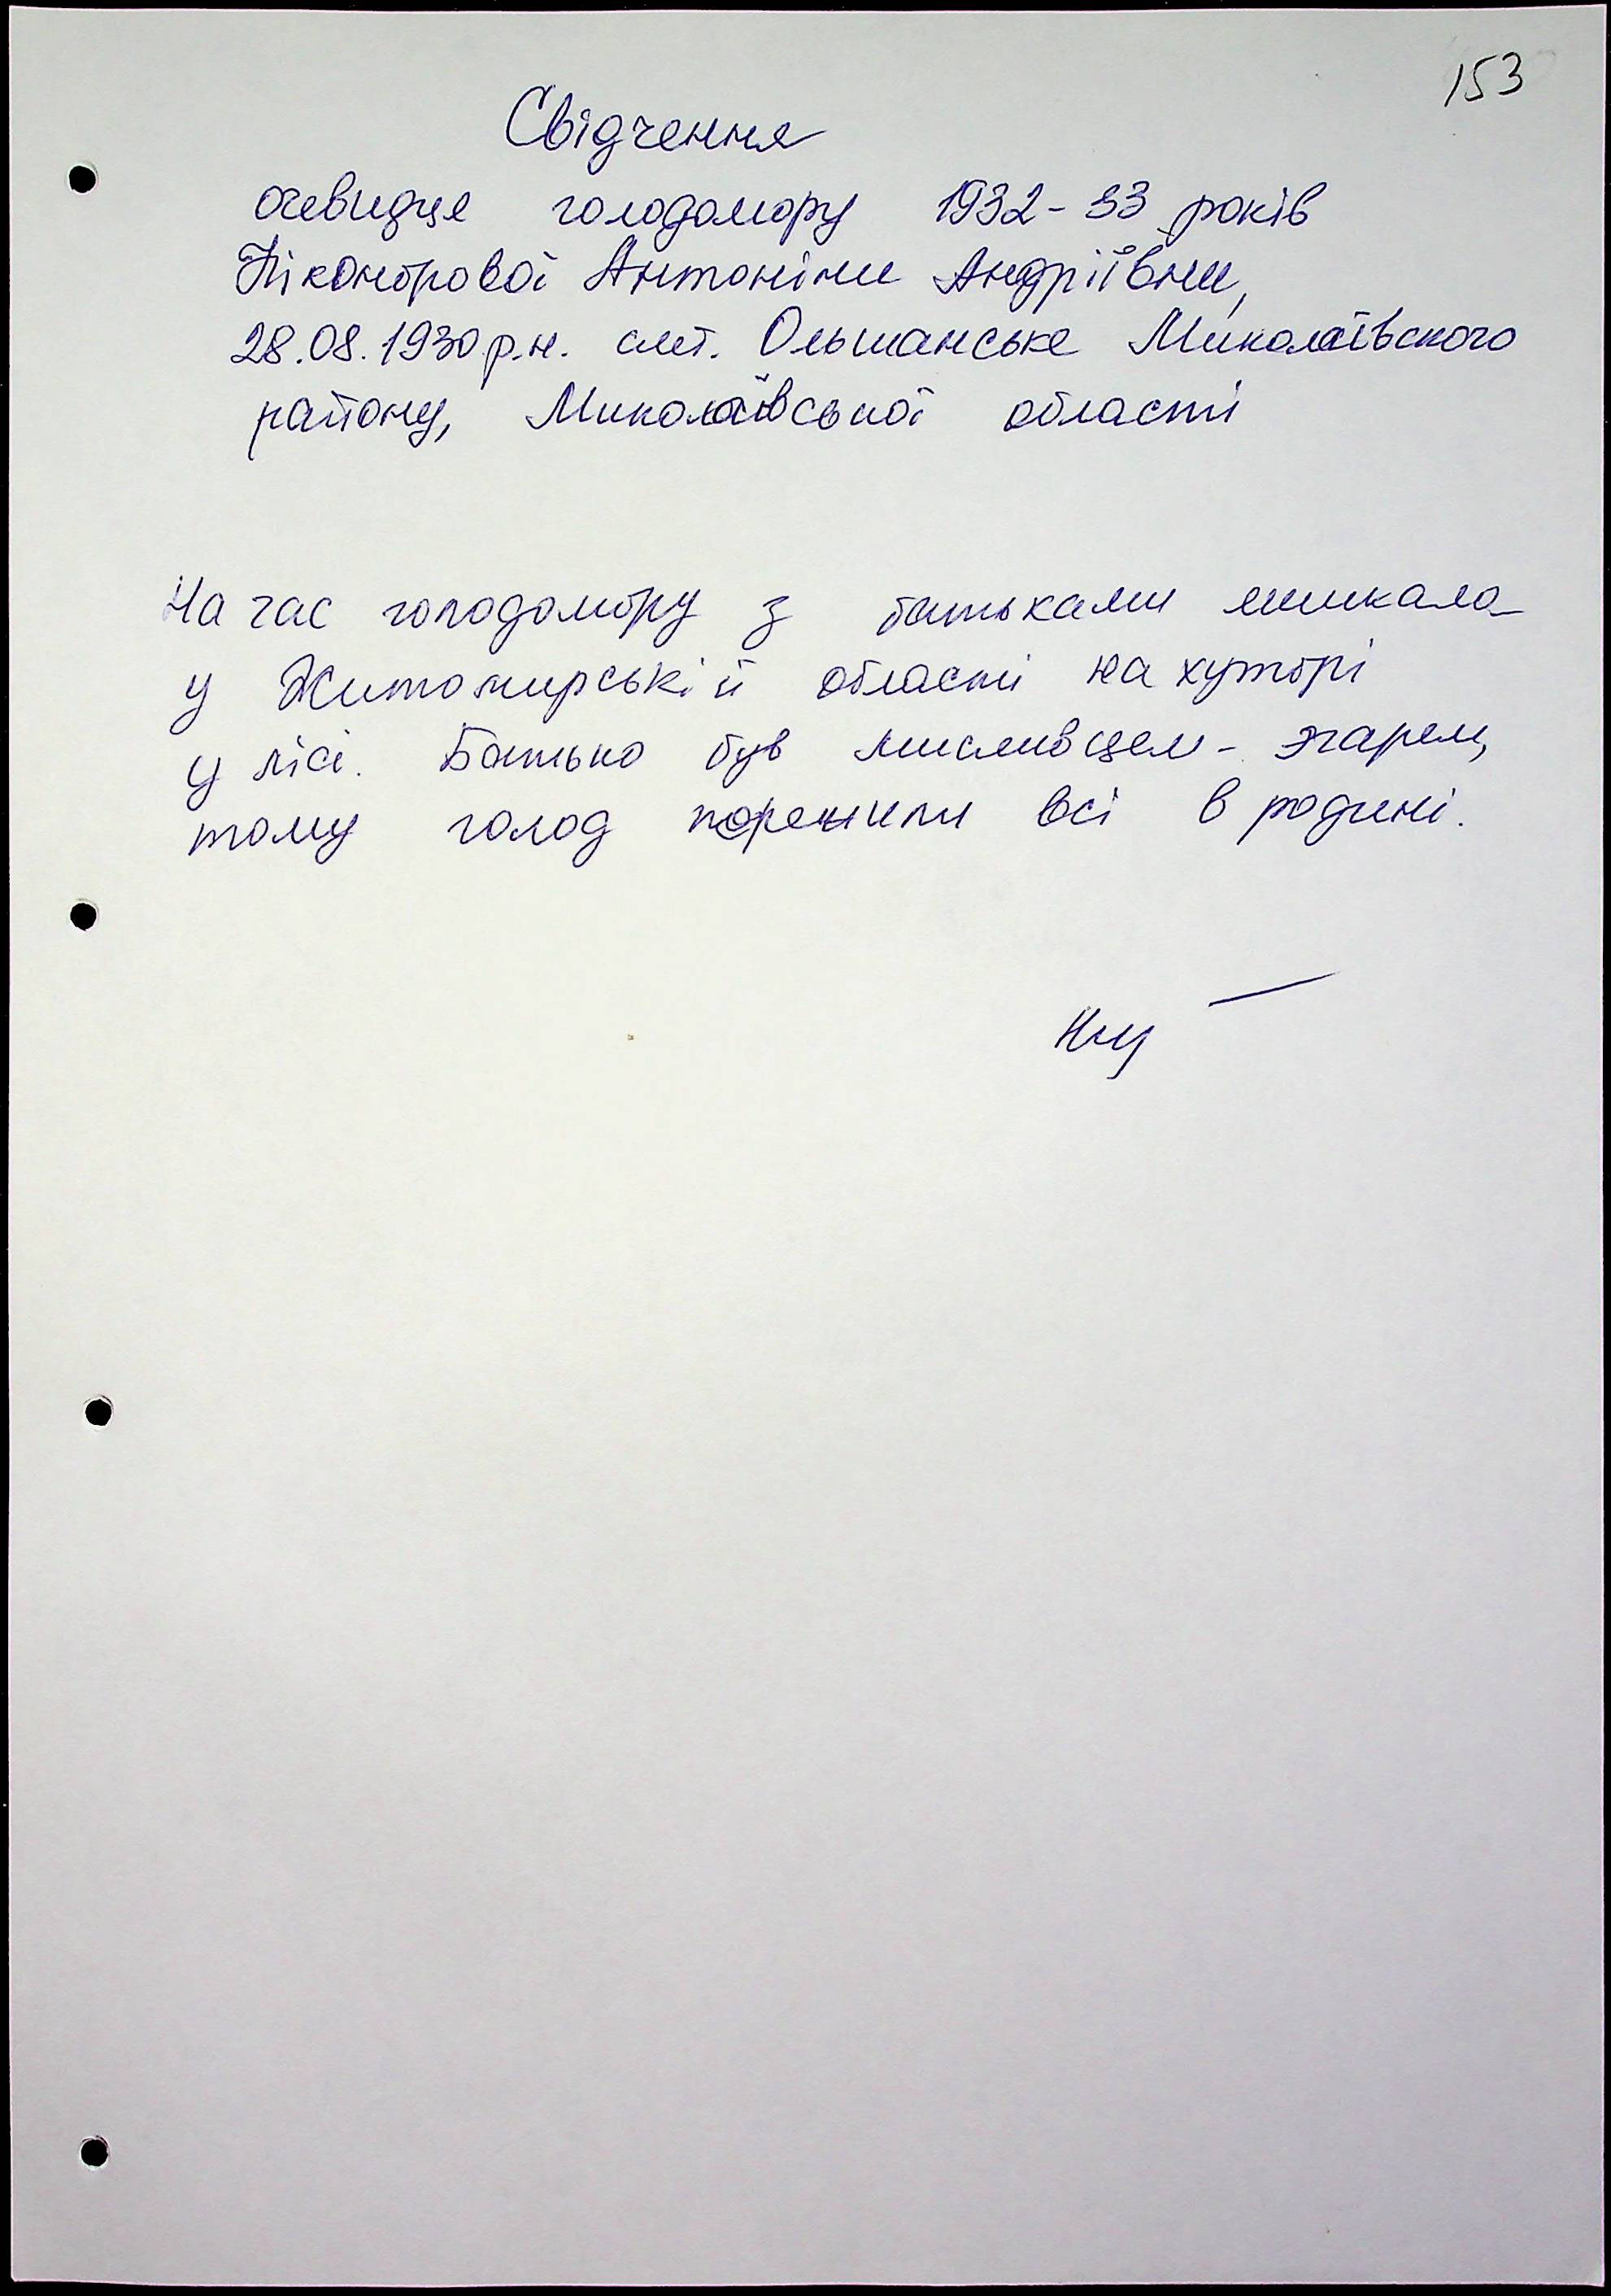 153
Свідчення
очевидця голодомору 1932-33 років
Ніконорової Антоніни Андріївни,
28.08.1930 р.н. смт. Ольшанське Миколаївского
району, Миколаївської області
На час голодомору з батьками мешкала
у Житомирській області на хуторі
у лісі. Батько був мисливцем - єгарем,
тому голод пережили всі в родині.